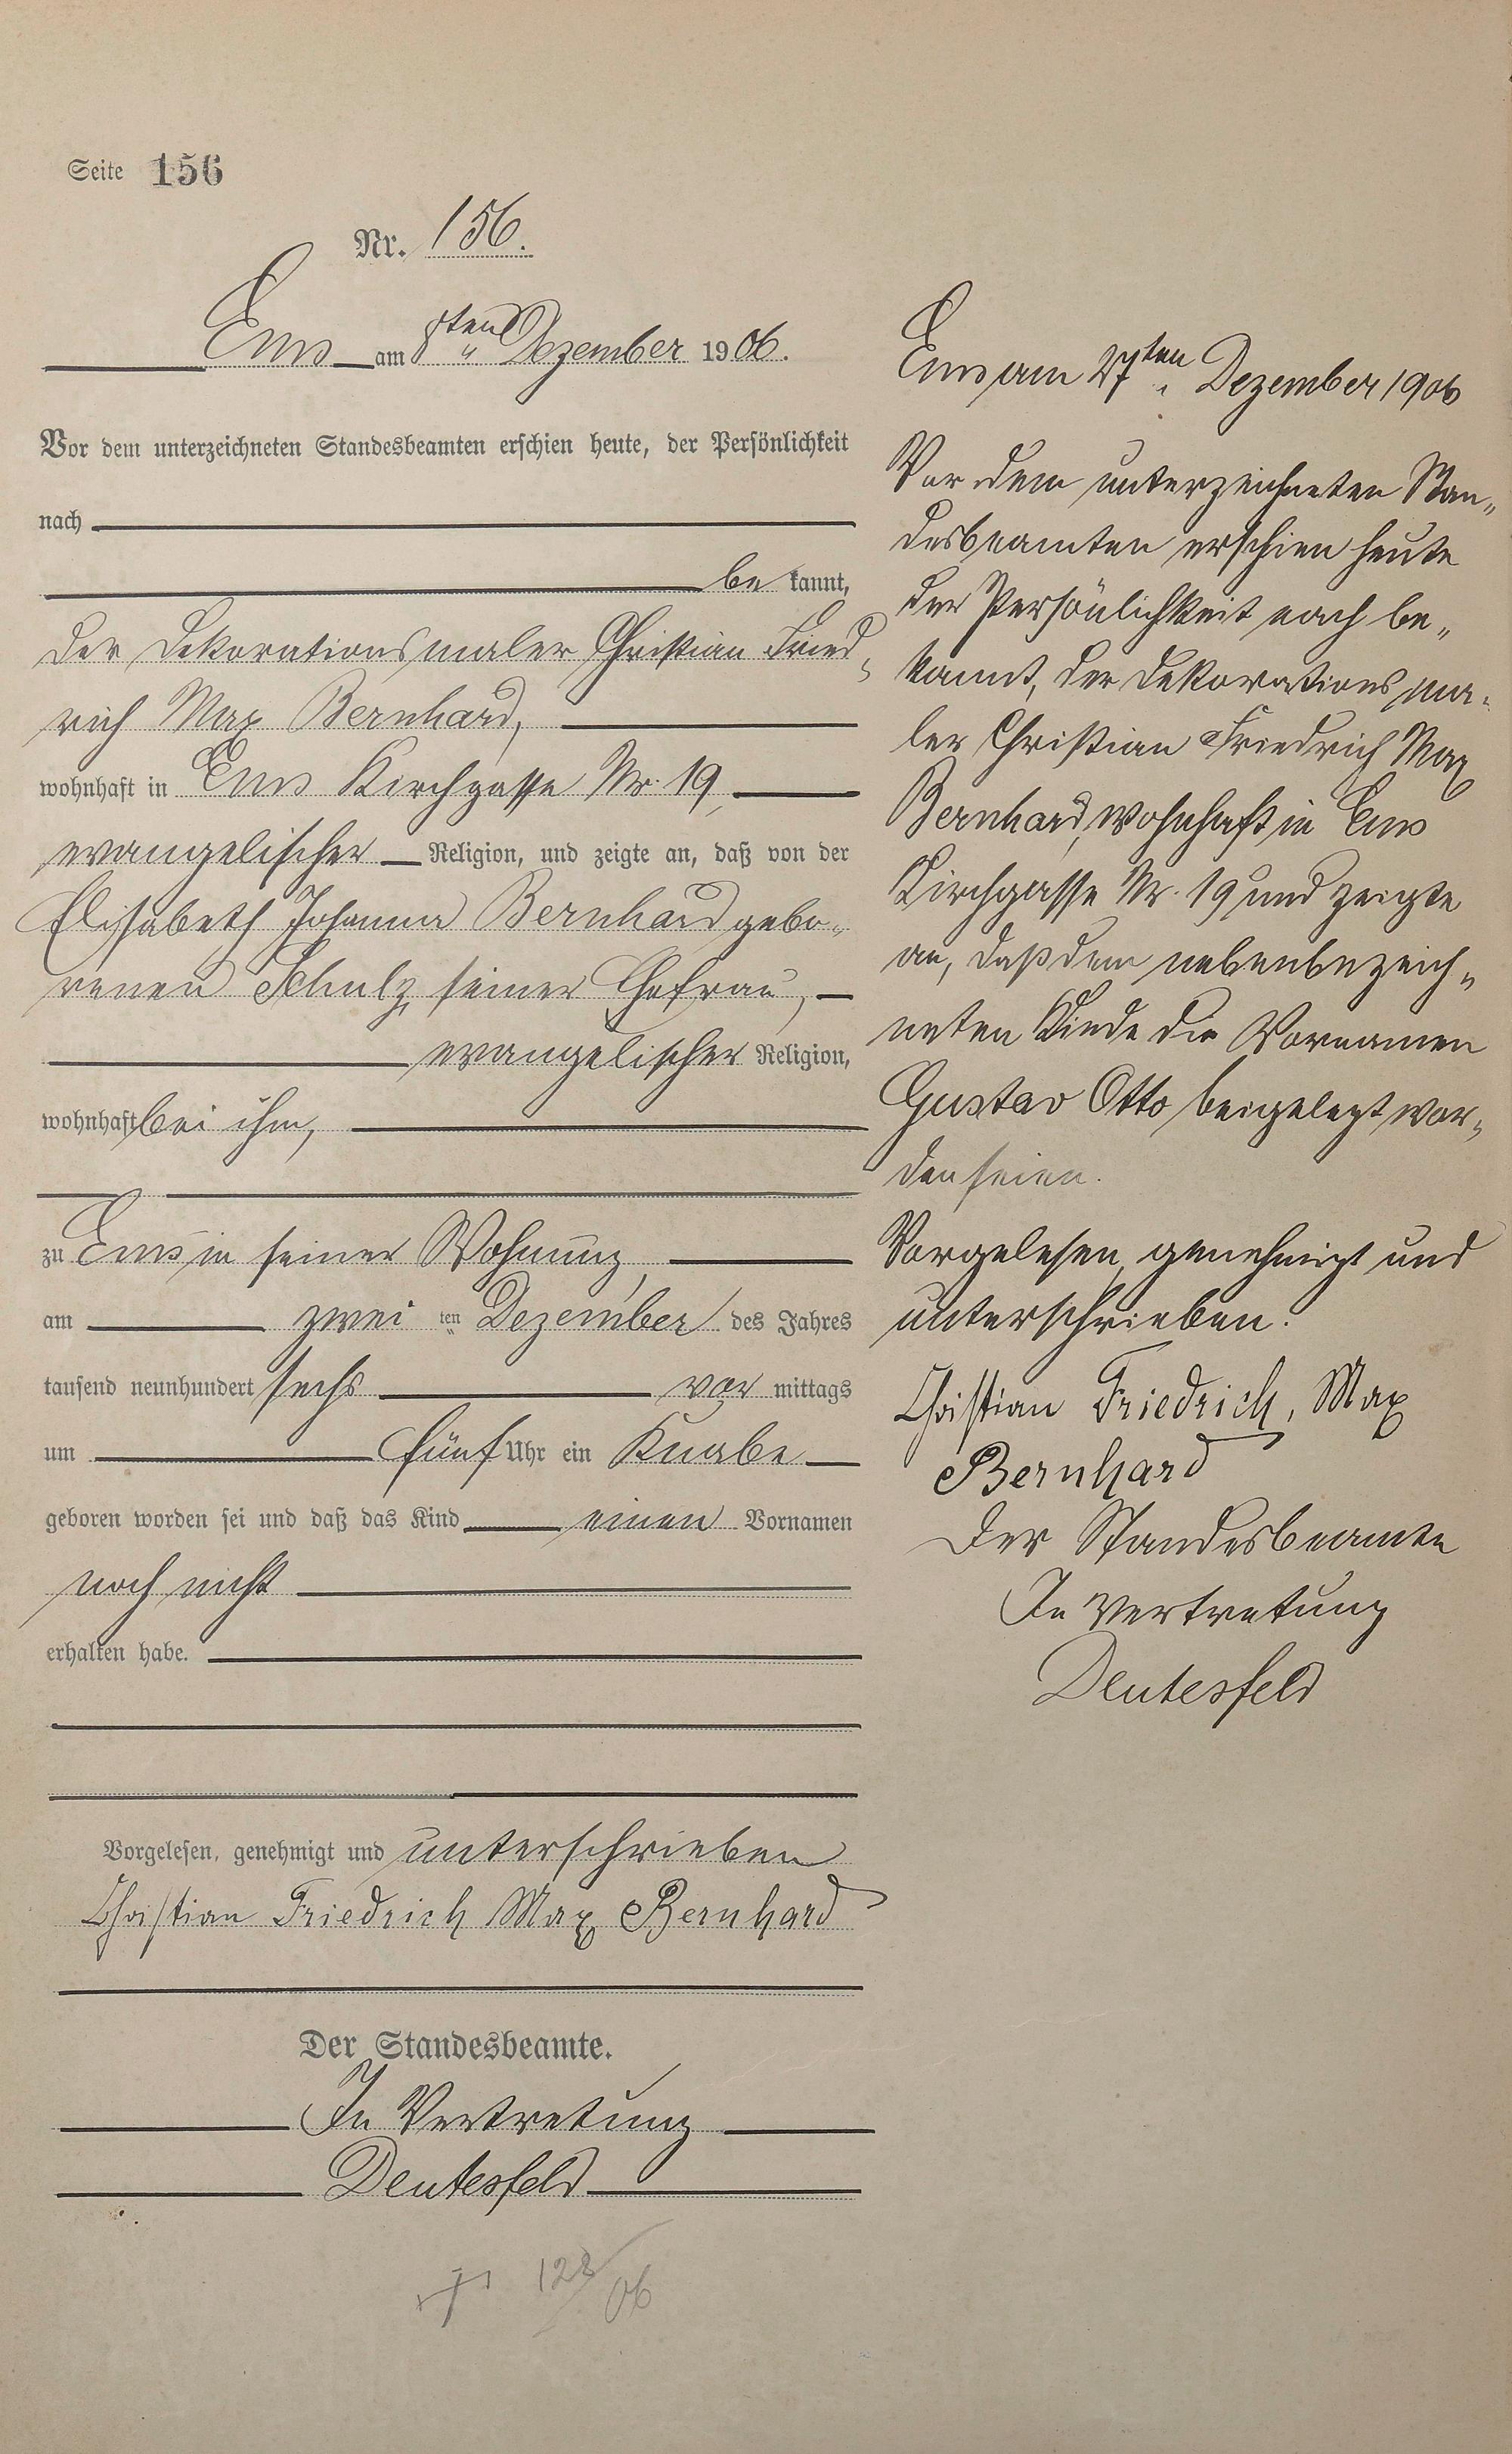 Seite 156
Nr. 156.
Ems am 8ten Dezember 1906.
Vor dem unterzeichneten Standesbeamten erschien heute, der Persönlichkeit
nach
be kannt,
der Dekorationsmaler Christian Fried-
rich Max Bernhard,
wohnhaft in Ems Kirchgasse Nr. 19,
evangelischer Religion, und zeigte an, daß von der
Elisabeth Johanna Bernhard gebo-
renen Schulz, seiner Ehefrau,
evangelischer Religion,
wohnhaft bei ihm,
zu Ems in seiner Wohnung,
am zwei ten Dezember des Jahres
tausend neunhundert sechs vor mittags
um fünf Uhr ein Knabe
geboren worden sei und daß das Kind einen Vornamen
noch nicht
erhalten habe.
Vorgelesen, genehmigt und unterschrieben
Christian Friedrich Max Bernhard
Der Standesbeamte.
In Vertretung
Deutesfeld
128/06
Ems am 27ten Dezember 1906
Vor dem unterzeichneten Stan-
desbeamten erschien heute
der Persönlichkeit nach be-
kannt, der Dekorationsma-
ler Christian Friedrich Max
Bernhard, wohnhaft in Ems
Kirchgasse Nr. 19 und zeigte
an, daß dem nebenbezeich-
neten Kinde die Vornamen
Gustav Otto beigelegt wor-
den seien.
Vorgelesen, genehmigt und
unterschrieben.
Christian Friedrich, Max
Bernhard
Der Standesbeamte
In Vertretung
Deutesfeld